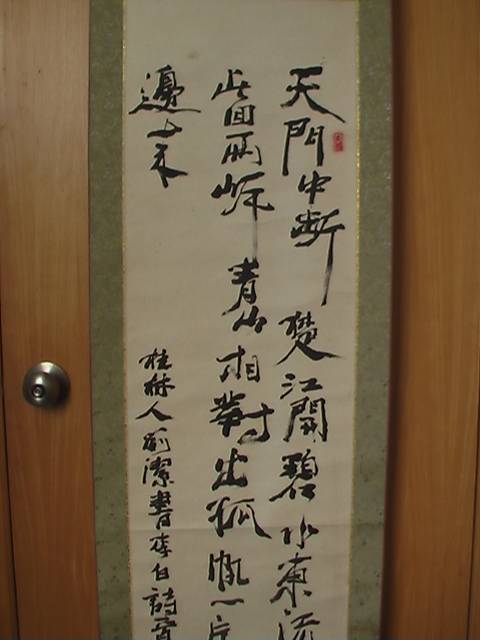 天門中断楚江開碧水東流
此回兩岸青山相對出孤帆一片
邊来
桂林人劉潔書李白詩